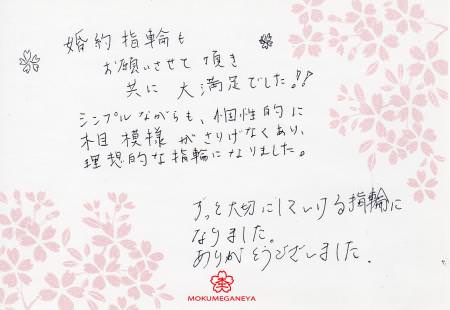 婚約指輪も
お願いさせて頂き
共に 大満足でした!!
シンプルながらも、個性的に
木目模様がさりげなくあり、
理想的な指輪になりました。
ずっと大切にしていける指輪に
なりました。
ありがとうございました.
MOKUMEGANEYA